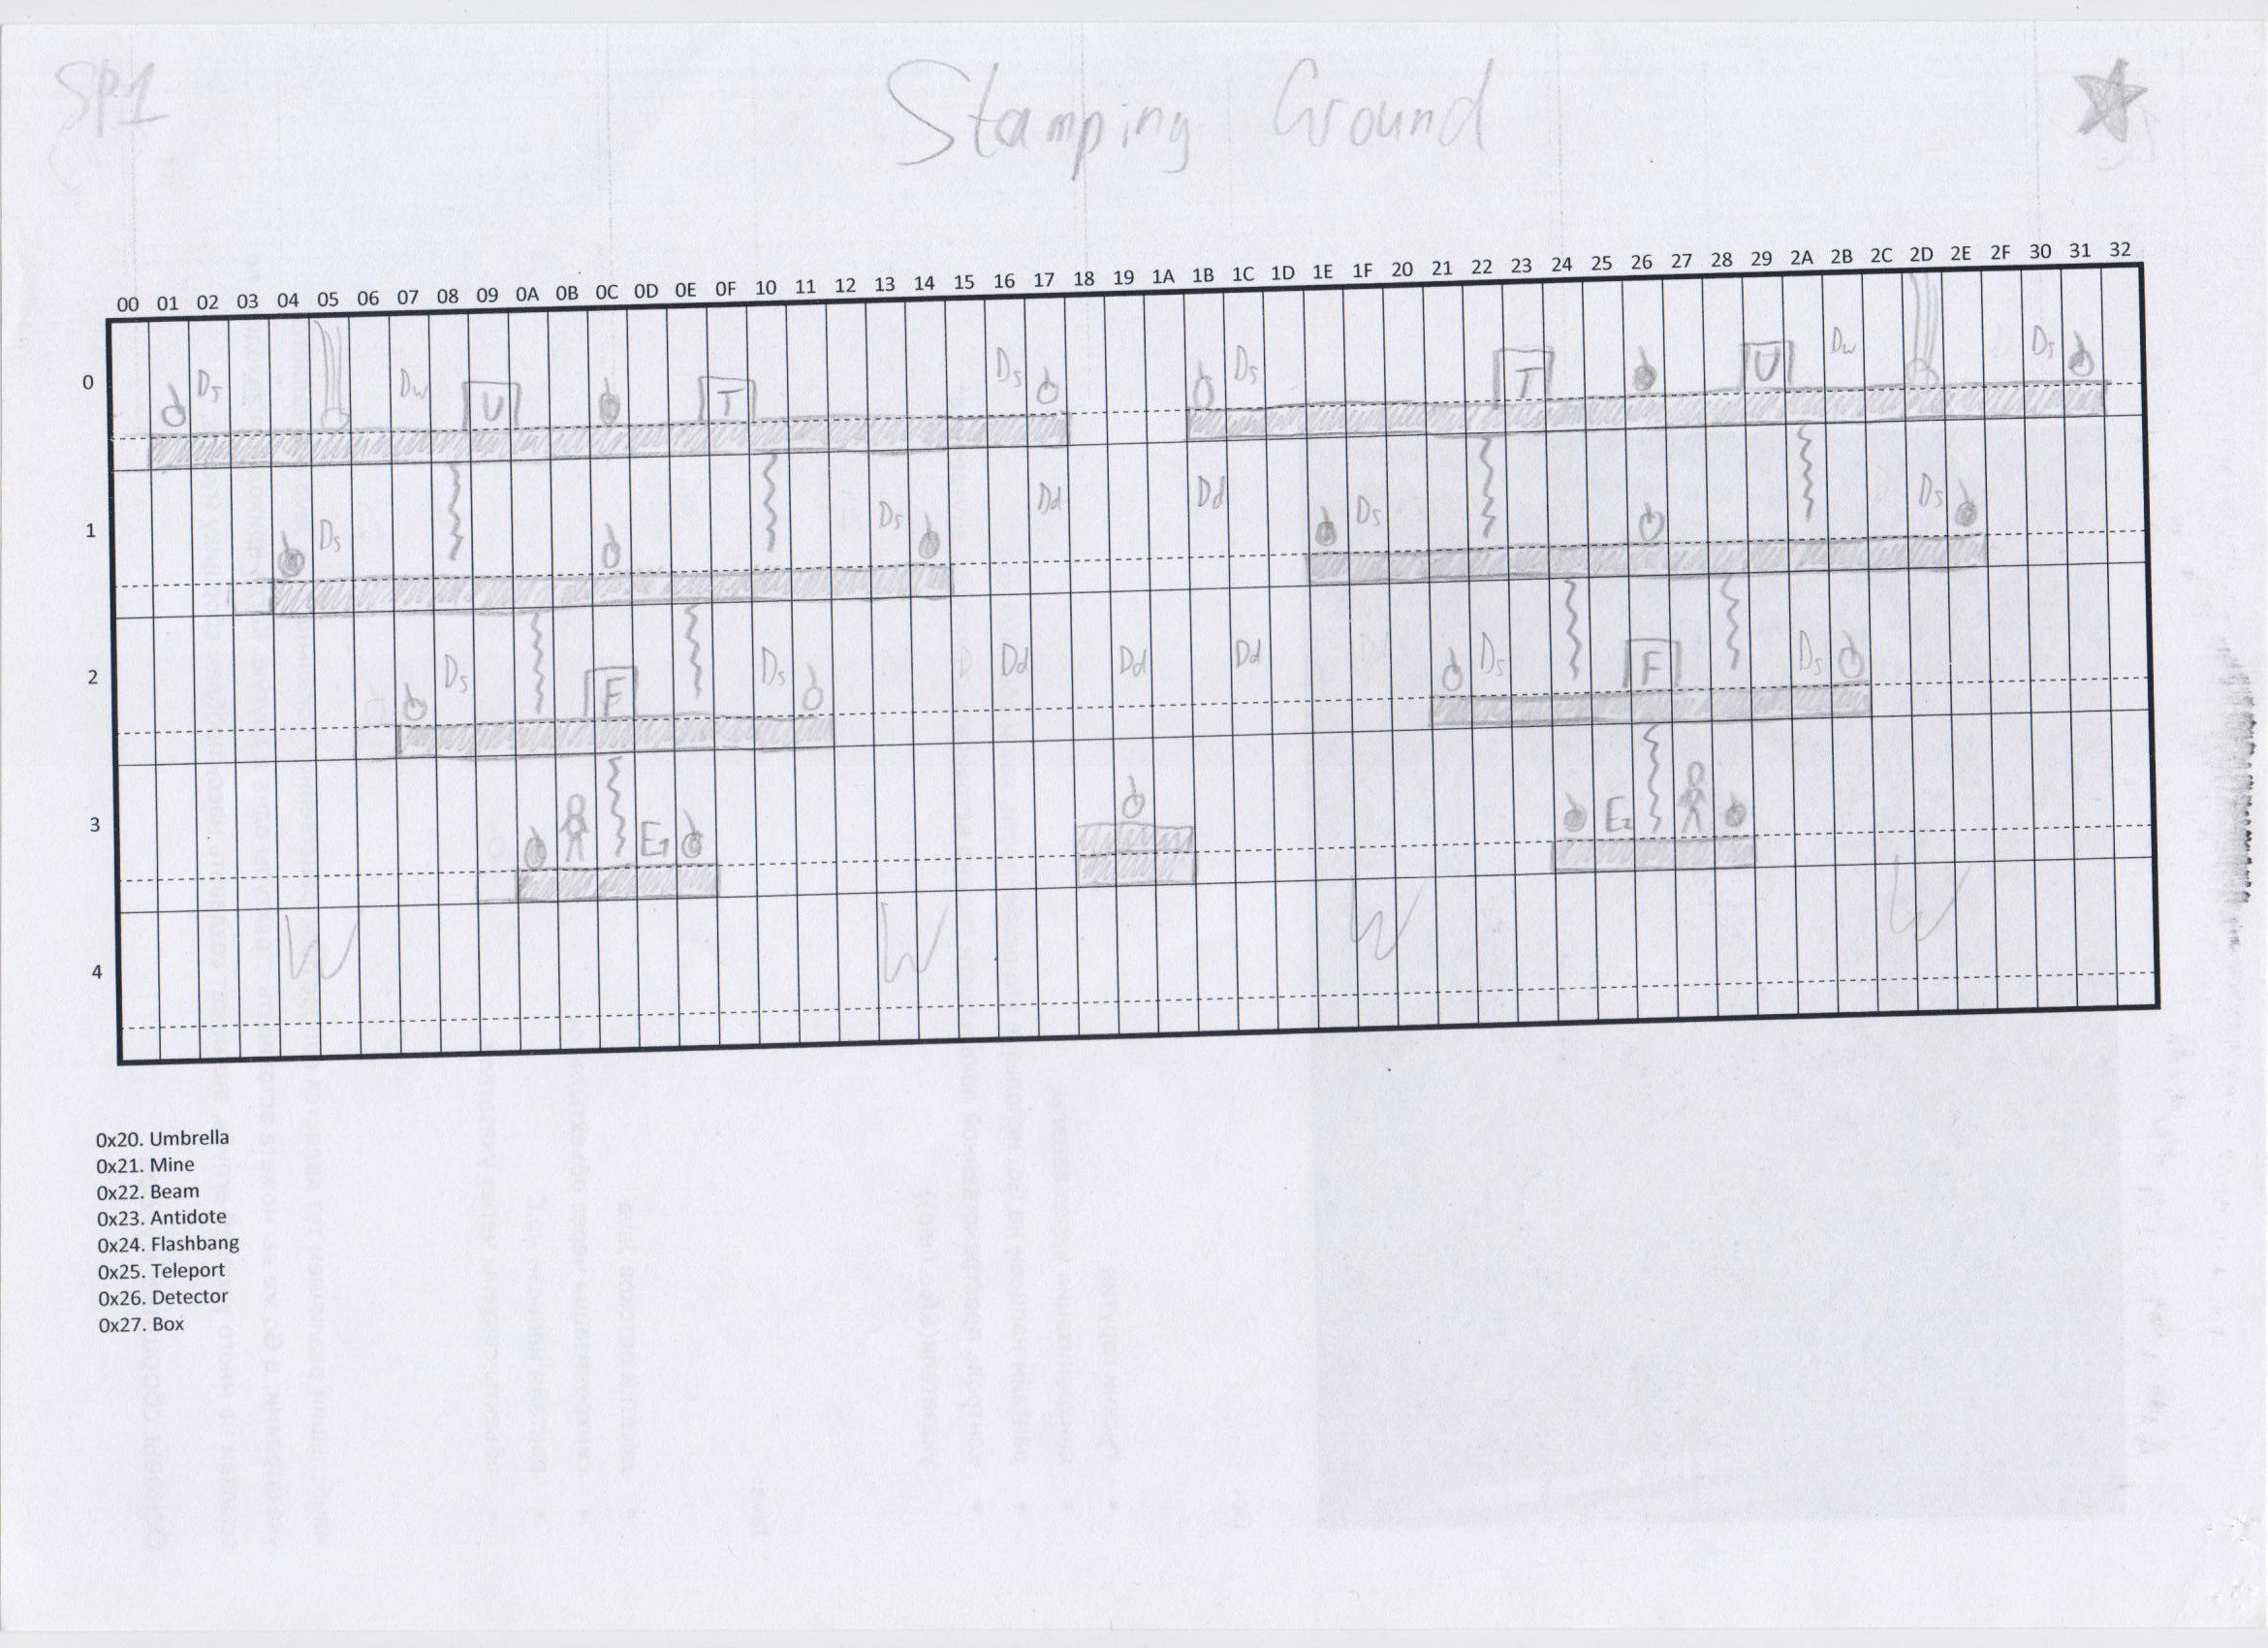 SP1 Stamping Ground
00 01 02 03 04 05 06 07 08 09 0A 0B 0C 0D 0E 0F 10 11 12 13 14 15 16 17 18 19 1A 1B 1C 1D 1E 1F 20 21 22 23 24 25 26 27 28 29 2A 2B 2C 2D 2E 2F 30 31 32
0 Ds Dw U T Ds Ds T U Dw Ds
1 Ds Ds Dd Dd Ds Ds
2 Ds F Ds Dd Dd Dd Ds F Ds
3 E1 E2
4 W W W W
0x20. Umbrella
0x21. Mine
0x22. Beam
0x23. Antidote
0x24. Flashbang
0x25. Teleport
0x26. Detector
0x27. Box